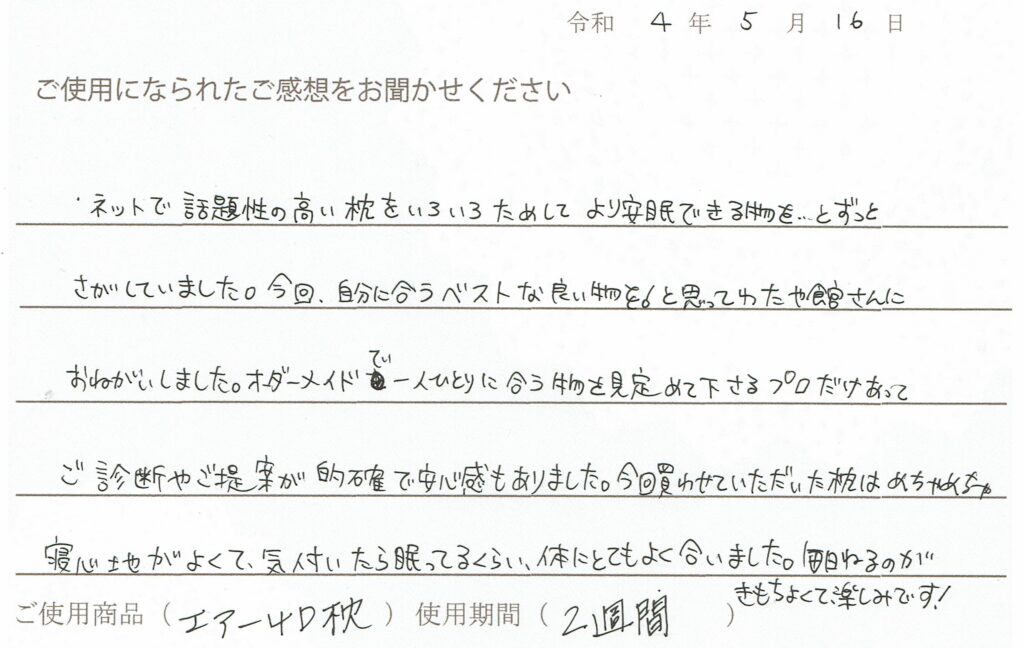 令和 4 年 5 月 16 日
ご使用になられたご感想をお聞かせください
・ネットで話題性の高い枕をいろいろためして より安眠できる物を…とずっと
さがしていました。今回、自分に合うベストな良い物を!と思ってわたや館さんに
おねがいしました。オーダーメイドで一人ひとりに合う物を見定めて下さるプロだけあって
ご診断やご提案が的確で安心感もありました。今回買わせていただいた枕はめちゃめちゃ
寝心地がよくて、気付いたら眠ってるくらい、体にとてもよく合いました。毎日ねるのが
きもちよくて、楽しみです!
ご使用商品（エアー4D枕）使用期間（2週間）